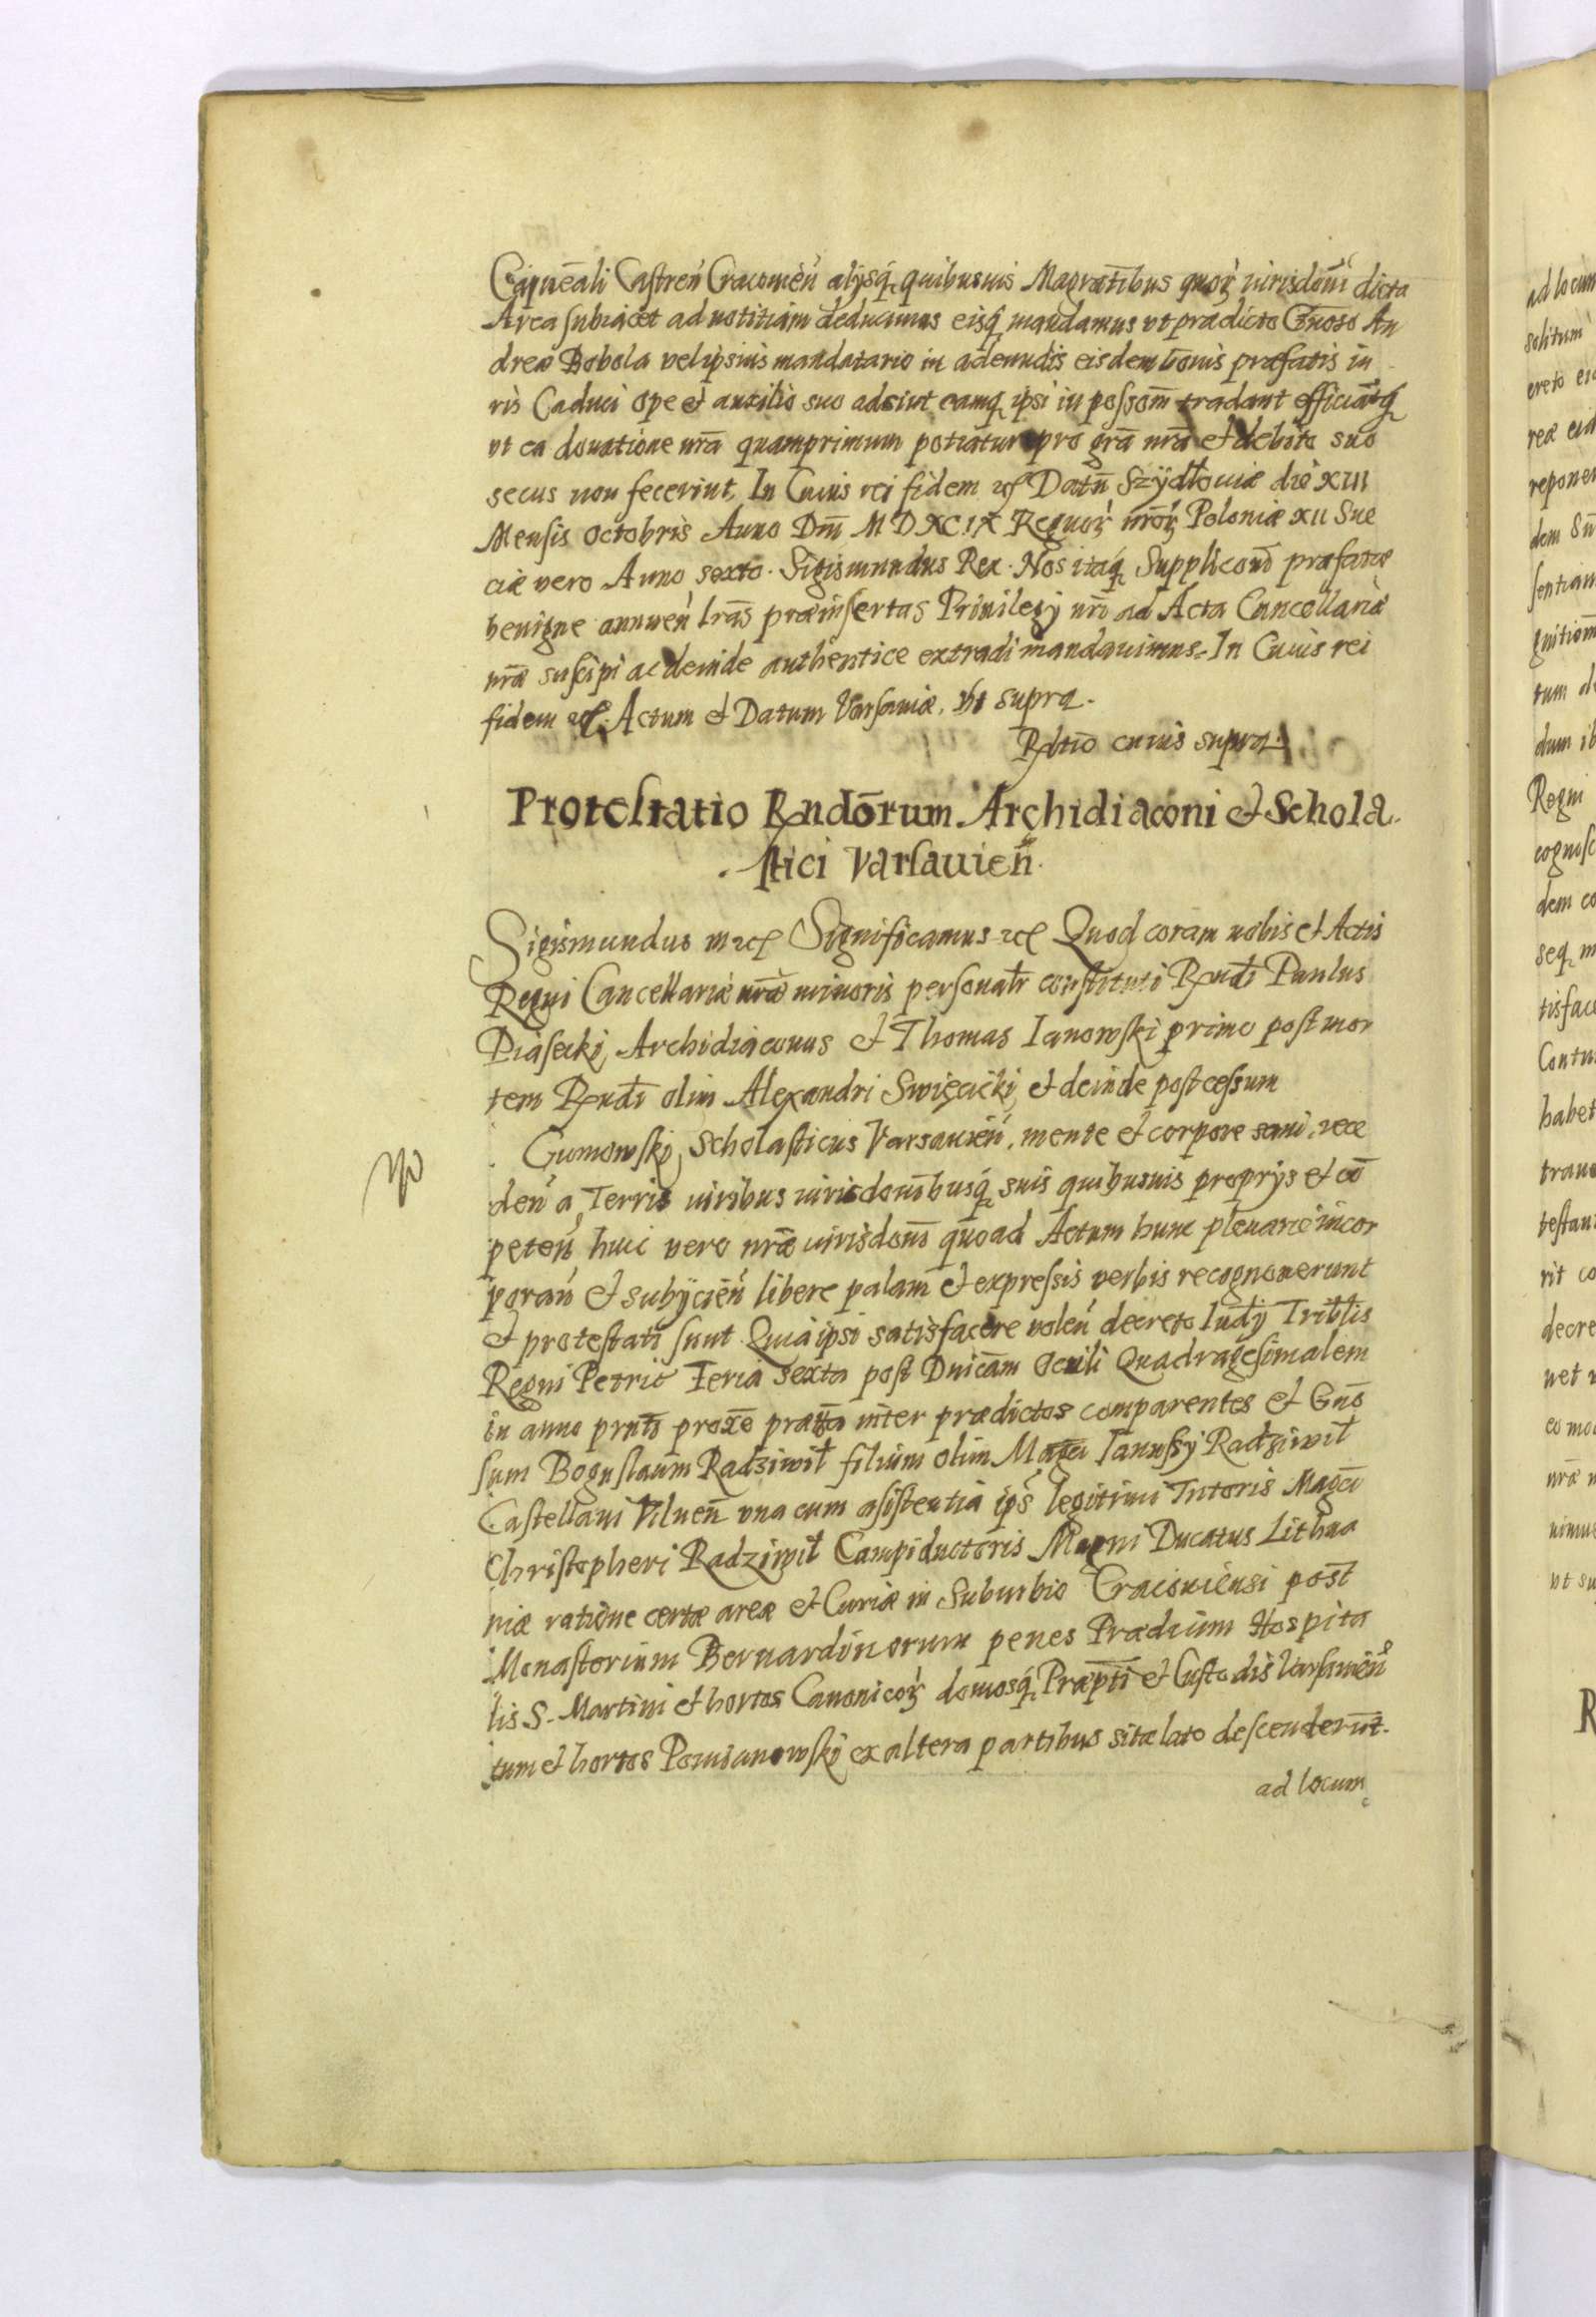 Capnēali Castren̄ Cracouien̄ alijsq; quibusuis Magratibus quoꝝ iurisdom̄ dicta
Area subiacet ad notitiam deducimus eisq; mandamus vt prædicto Gnoso An
dreæ Bobola vel ipsius mandatario in adeundis eisdem bonis præfatis iu
ris Caduci ope et auxilio suo adsint eamq; ipsi in possom̄ tradant efficiātq;
vt ea donatione nrā quamprimum potiatur pro grā nrā et debito suo
secus non fecerint. In Cuius rei fidem etc Datn̄ Szydłouiæ die XIII
Mensis Octobris Anno Dnī M D XC IX Regnoꝝ nrōꝝ Poloniæ XII Sue
ciæ vero Anno sexto. Sigismundus Rex. Nos itaq; Suppliconī præfatæ
benigne annuen̄ lrās præinsertas Priuilegij nrī ad Acta Cancellariæ
nræ suscipi ac deinde authentice extradi mandauimus. In Cuius rei
fidem etc. Actum et Datum Varsauiæ, vt supra.
Rltio cuius supra.
Protestatio Rndōrum Archidiaconi et Schola
stici Varsauien̄.
Sigismundus III etc Significamus etc Quod coram nobis et Actis
Regni Cancellariæ nræ minoris personalr̄ constituti Rndī Paulus
Piasecki Archidiaconus et Thomas Ianowski primo post mor
tem Rndi olim Alexandri Swięcicki et deinde post cessum
Gumowski Scholasticus Varsauien̄, mente et corpore sani, rece
den̄ a Terris iuribus iurisdonibusq; suis quibusuis proprijs et cō
peten̄ huic vero nræ iurisdonī quoad Actum hunc plenarie incor
poran̄ et subijcien̄ libere palam et expressis verbis recognouerunt
et protestati sunt Quia ipsi satisfacere volen̄ decreto Iudij Tribłis
Regni Petric Feria Sexta post Dnicam Oculi Quadragesimalem
in anno prntī proxe præta inter prædictos comparentes et Gnō
sum Boguslaum Radziwił filium olim Magci Ianussij Radziwił
Castellani Vilnen̄ vna cum asistentia ips̄ legitimi Tutoris Magci
Christopheri Radziwił Campiductoris Magni Ducatus Lithua
niæ ratione certæ areæ et Curiæ in Suburbio Cracouiensi post
Monasterium Bernardinorum penes Prædium Hospita
lis S. Martini et hortos Canonicoꝝ domosq; Præpti et Custodis Varsauien̄
tum et hortos ex altera partibus sitæ lato descenderūt.
ad locum